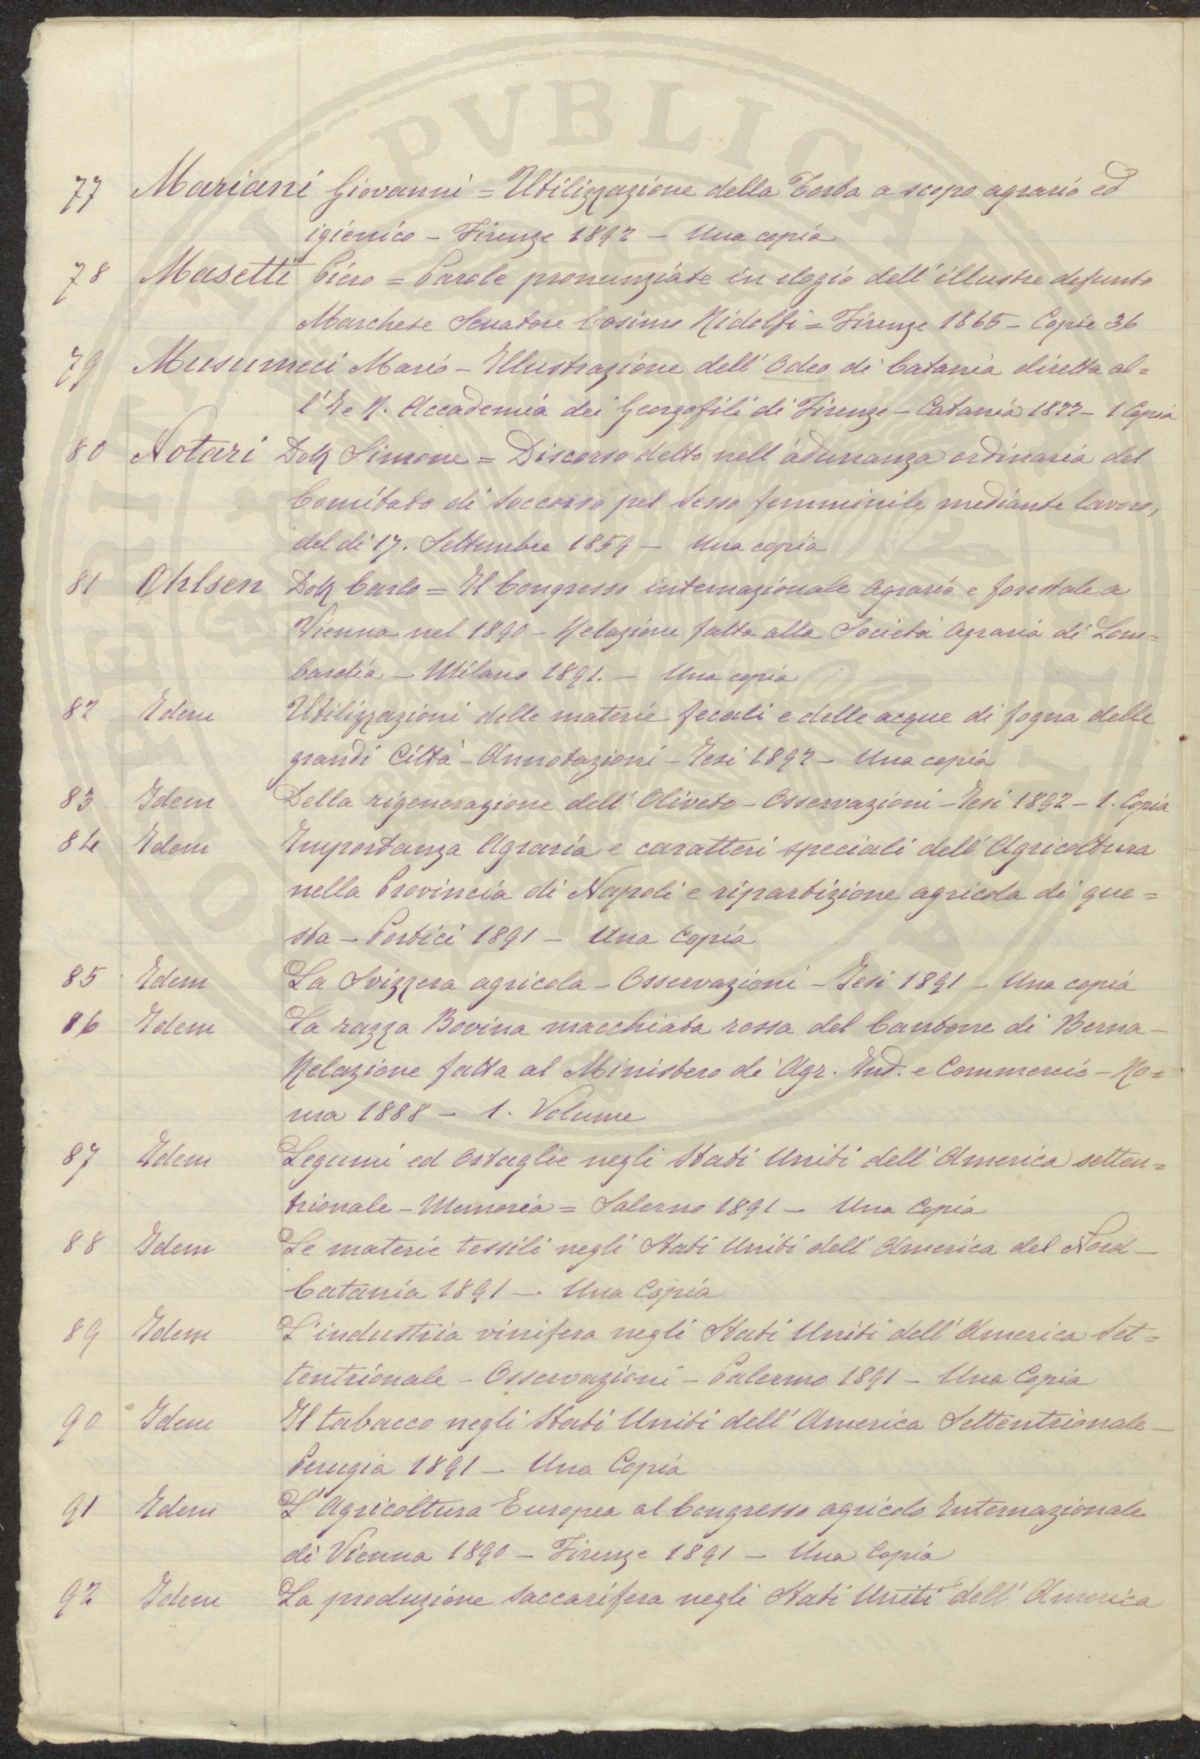 77 Mariani Giovanni = Utilizzazione della Torba a scopo agrario ed
igienico - Firenze 1892 - Una copia
78 Musetti Piero = Parole pronunziate in elogio dell' illustre defunto
Marchese Senatore Cosimo Ridolfi = Firenze 1865 - Copie 36
79 Musumeci Mario - Illustrazione dell' Odeo di Catania diretta al=
l' I. e R. Accademia dei Georgofili di Firenze - Catania 1822 - 1 Copia
80 Notari Dott Simone = Discorso detto nell' adunanza ordinaria del
Comitato di Soccorso pel sesso femminile mediante lavoro,
del dì 17. Settembre 1859 - Una copia
81 Ohlsen Dott Carlo = Il Congresso internazionale Agrario e forestale a
Vienna nel 1890 - Relazione fatta alla Società Agraria di Lom=
bardia - Milano 1891. - Una copia
82 Idem Utilizzazioni delle materie fecali e delle acque di fogna delle
grandi Città - Annotazioni - Jesi 1892 - Una copia
83 Idem Della rigenerazione dell' Oliveto - Osservazioni - Jesi 1892 - 1. Copia
84 Idem Importanza Agraria e caratteri speciali dell' Agricoltura
nella Provincia di Napoli e ripartizione agricola di que=
sta - Portici 1891 - Una Copia
85 Idem La Svizzera agricola - Osservazioni - Jesi 1891 - Una copia
86 Idem La razza Bovina macchiata rossa del Cantone di Berna -
Relazione fatta al Ministero di Agr. Ind. e Commercio - Ro=
ma 1888 - 1. Volume
87 Idem Legumi ed Ortaglie negli Stati Uniti dell' America setten=
trionale - Memoria = Salerno 1891 - Una Copia
88 Idem Le materie tessili negli Stati Uniti dell' America del Nord -
Catania 1891 - Una Copia
89 Idem L'industria vinifera negli Stati Uniti dell' America Set=
tentrionale - Osservazioni - Palermo 1891 - Una Copia
90 Idem Il tabacco negli Stati Uniti dell' America Settentrionale -
Perugia 1891 - Una Copia
91 Idem L' Agricoltura Europea al Congresso agricolo Internazionale
di Vienna 1890 - Firenze 1891 - Una Copia
92 Idem La produzione Saccarifera negli Stati Uniti dell' America